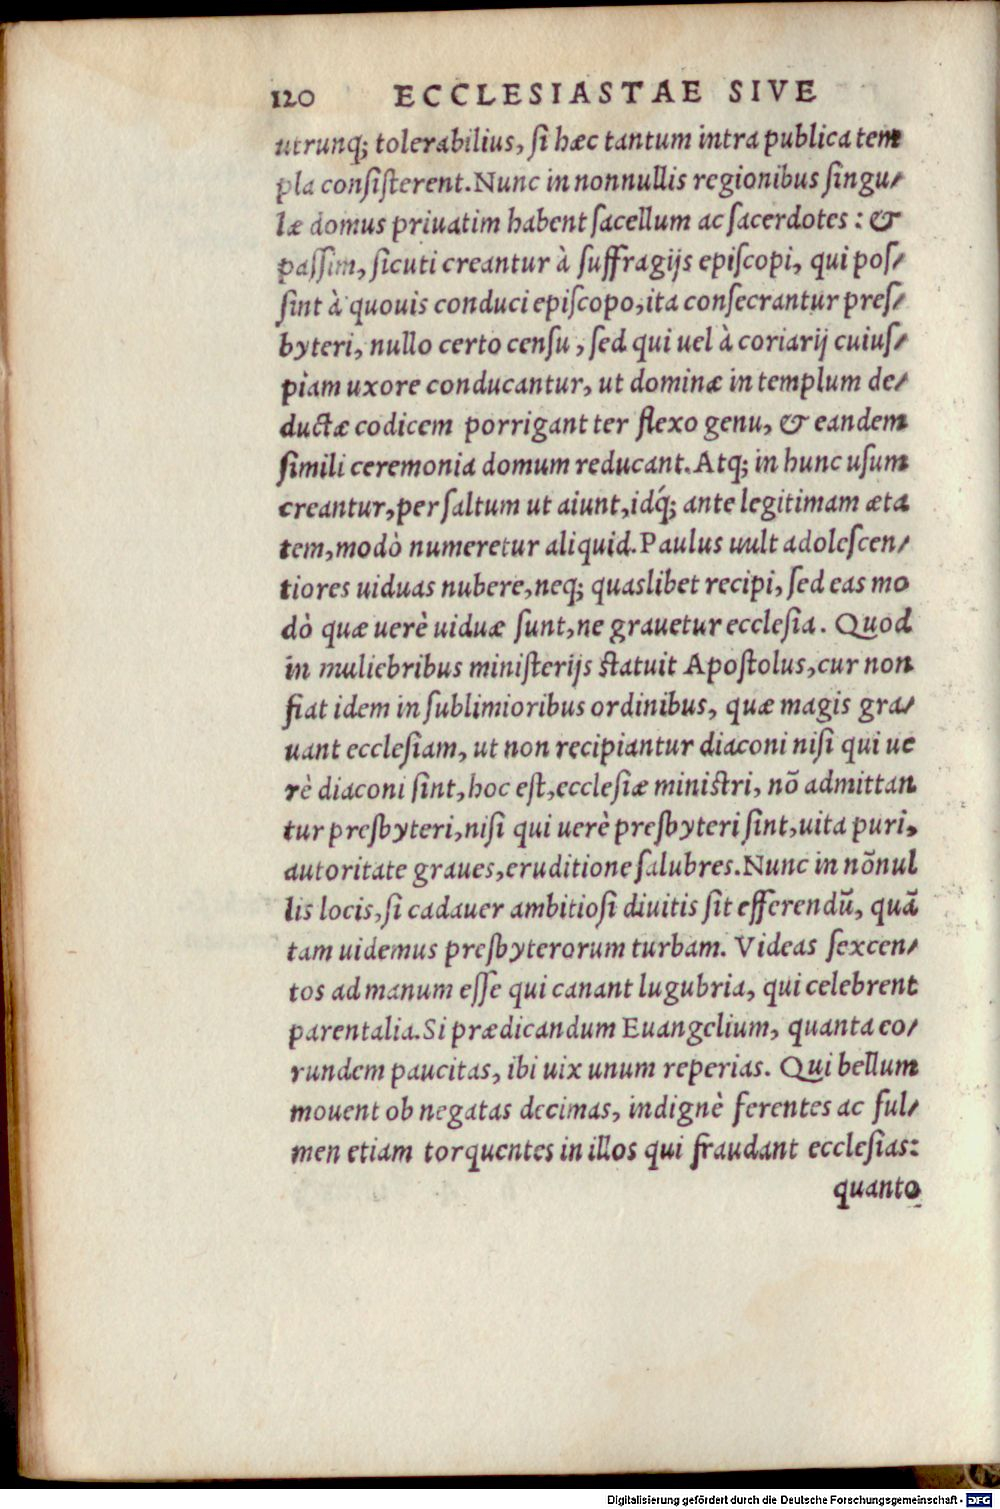 120 ECCLESIASTAE SIVE
utrunq; tolerabilius, si hæc tantum intra publica tem
pla consisterent. Nunc in nonnullis regionibus singu-
læ domus priuatim habent sacellum ac sacerdotes: &
passim, sicuti creantur à suffragijs episcopi, qui pos-
sint à quouis conduci episcopo, ita consecrantur pres-
byteri, nullo certo censu, sed qui uel à coriarij cuius-
piam uxore conducantur, ut dominæ in templum de-
ductæ codicem porrigant ter flexo genu, & eandem
simili ceremonia domum reducant. Atq; in hunc usum
creantur, per saltum ut aiunt, idq́; ante legitimam æta
tem, modò numeretur aliquid. Paulus uult adolescen-
tiores uiduas nubere, neq; quaslibet recipi, sed eas mo
dò quæ uerè uiduæ sunt, ne grauetur ecclesia. Quod
in muliebribus ministerijs statuit Apostolus, cur non
fiat idem in sublimioribus ordinibus, quæ magis gra-
uant ecclesiam, ut non recipiantur diaconi nisi qui ue
rè diaconi sint, hoc est, ecclesiæ ministri, nō admittan
tur presbyteri, nisi qui uerè presbyteri sint, uita puri,
autoritate graues, eruditione salubres. Nunc in nōnul
lis locis, si cadauer ambitiosi diuitis sit efferendū, quā
tam uidemus presbyterorum turbam. Videas sexcen-
tos ad manum esse qui canant lugubria, qui celebrent
parentalia. Si prædicandum Euangelium, quanta eo-
rundem paucitas, ibi uix unum reperias. Qui bellum
mouent ob negatas decimas, indignè ferentes ac ful-
men etiam torquentes in illos qui fraudant ecclesias:
quanto
Digitalisierung gefördert durch die Deutsche Forschungsgemeinschaft - DFG